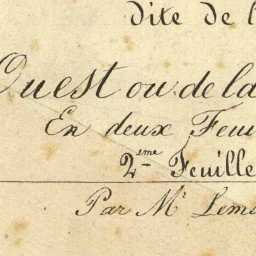 dite de l
Ouest ou de la
En deux Feui
2eme Feuille
Par Mr Lemo